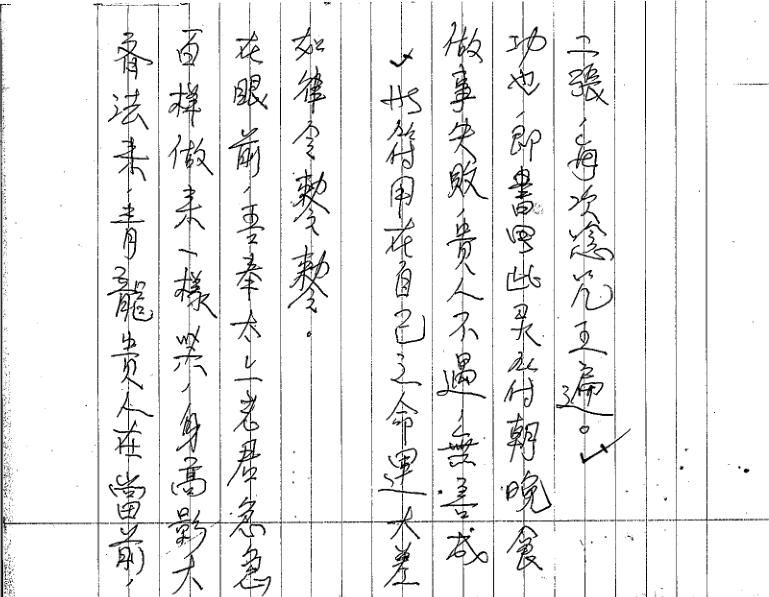 法来,青龍貴人在當前,
百样做来一樣,身高影大
在眼前,吾奉太上老君急急
如律令敕令敕令。
✓此符用在自己之命運大差
做事失敗,貴人不遇,無善成
功也,即書用此灵符朝晚食
二張,每次唸咒五遍。✓